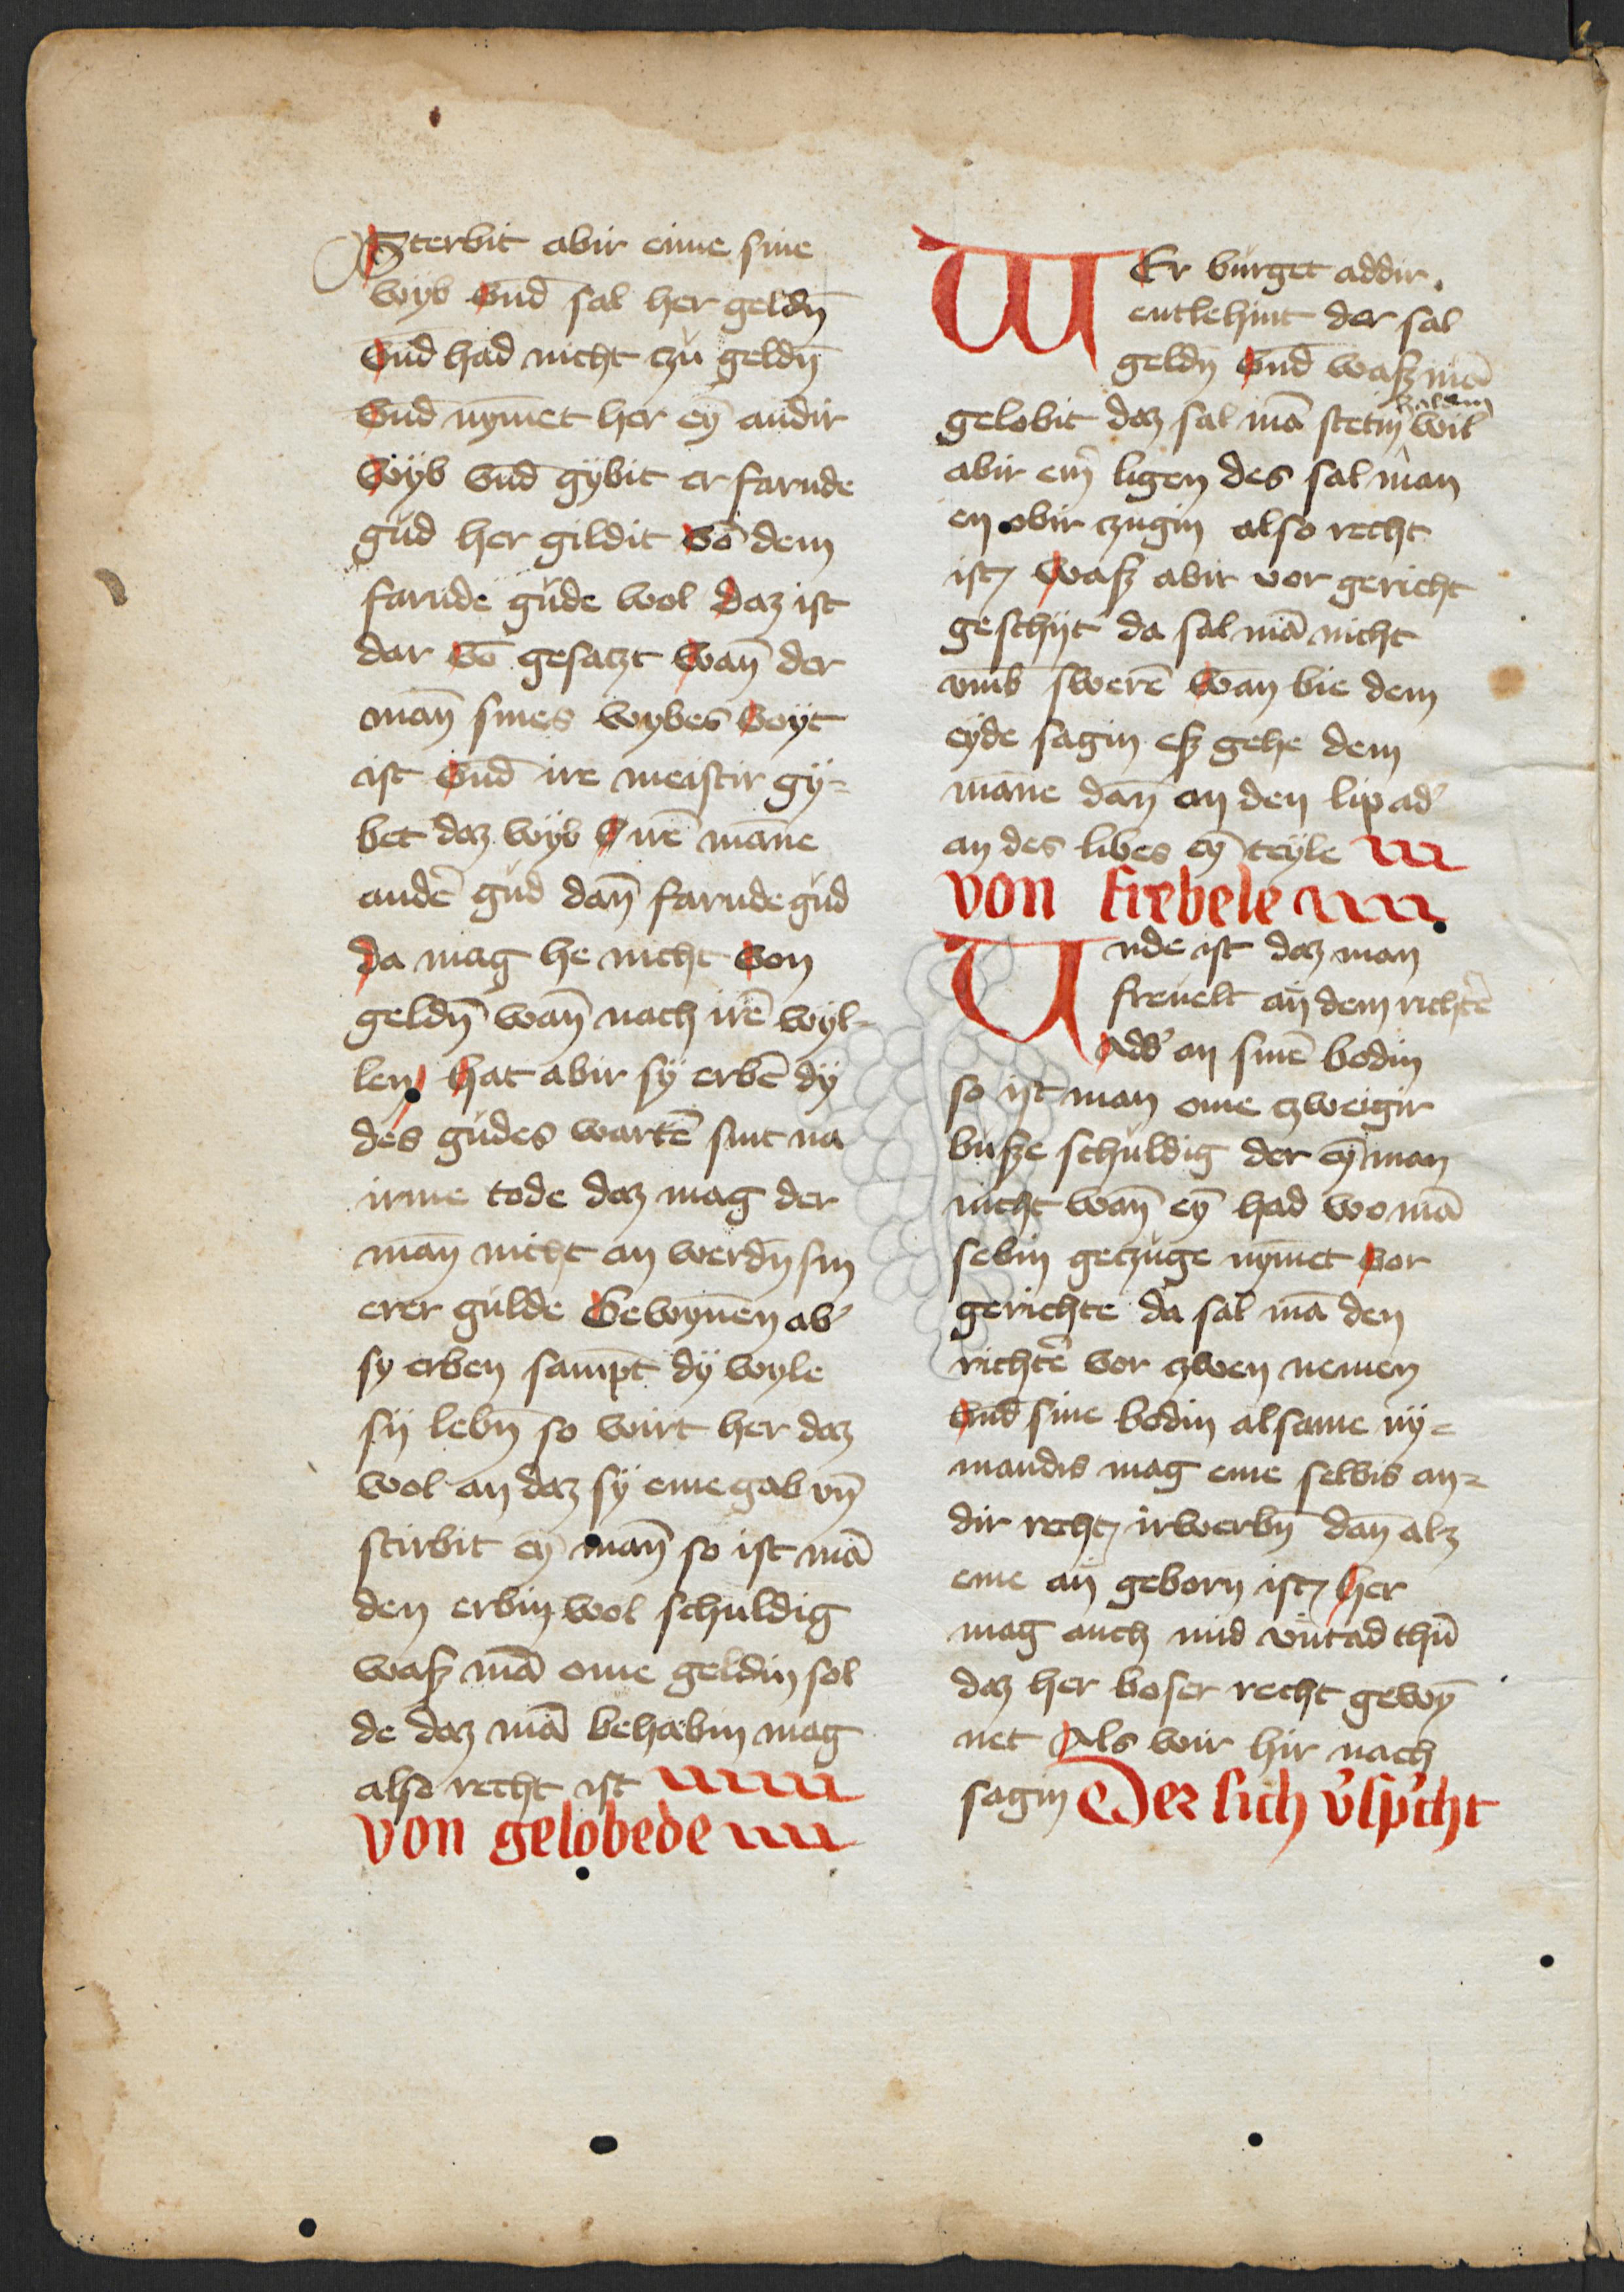 Sterbit abir eime sine
wyb vnd̄ sal her geldn̄
vnd̄ had nicht czu geldn̄
vnd̄ nym̄et her ey̅ andir
wyb vnd̄ gybit er farnde
gud her gildit vō dem
farnde gude wol daz ist
dar vō gesatzt wan̄ der
man̄ sines wybes voyt
ist vnd̄ ire meistir gy=
bet daz wyb irē man̄e
andē gud dan̄ farnde gud
da mag he nicht von
geldn̄ wan̄ nach irē wyl=
len hat abir sy erbē dy
des gudes wartē sint na
irme tode daz mag der
man̄ nicht an werdn̄ sin
erer gulde Gewyn̄en ab᾽
sy erben sampt dy wyle
sy lebn̄ so wirt her daz
wol an daz sy eme gab vn̄
stirbit ey̅ man̄ so ist mā
den erbin wol schuldig
wasz mā ome geldin sol
de daz mā behabin mag
also recht ist
von gelobede
WEr burget addir
entlehint der sal
geldn̄ vnd̄ wasz mā
haldem
gelobit daz sal mā stetin wil
abir em̄ ligen des sal man
en obir czugin also recht
ist wasz abir vor gericht
geschyt da sal mā nicht
vmb swerē wan bie dem
eyde sagin esz gehe dem
man̄e dan̄ an den lip ad᾽
an des libes ey̅ teyle
von frebele
Vnde ist daz man
freuelt an dem richtē
Add᾽ an sinē bodin
so ist man ome czweigir
busze schuldig der ey̅ man
nicht wan̄ ey̅ had wo mā
sebin geczuge nym̄et vor
gerichte da sal mā den
richtē vor czwen nemen
vnd̄ sine bodin alsame ny=
mandis mag eme selbis an=
dir recht irwerbn̄ dan̄ alz
eme an geborn ist her
mag auch mid vntad thū
daz her boser recht gewy̅
net Als wir hir nach
sagin Der sich v᾽sp᾽cht